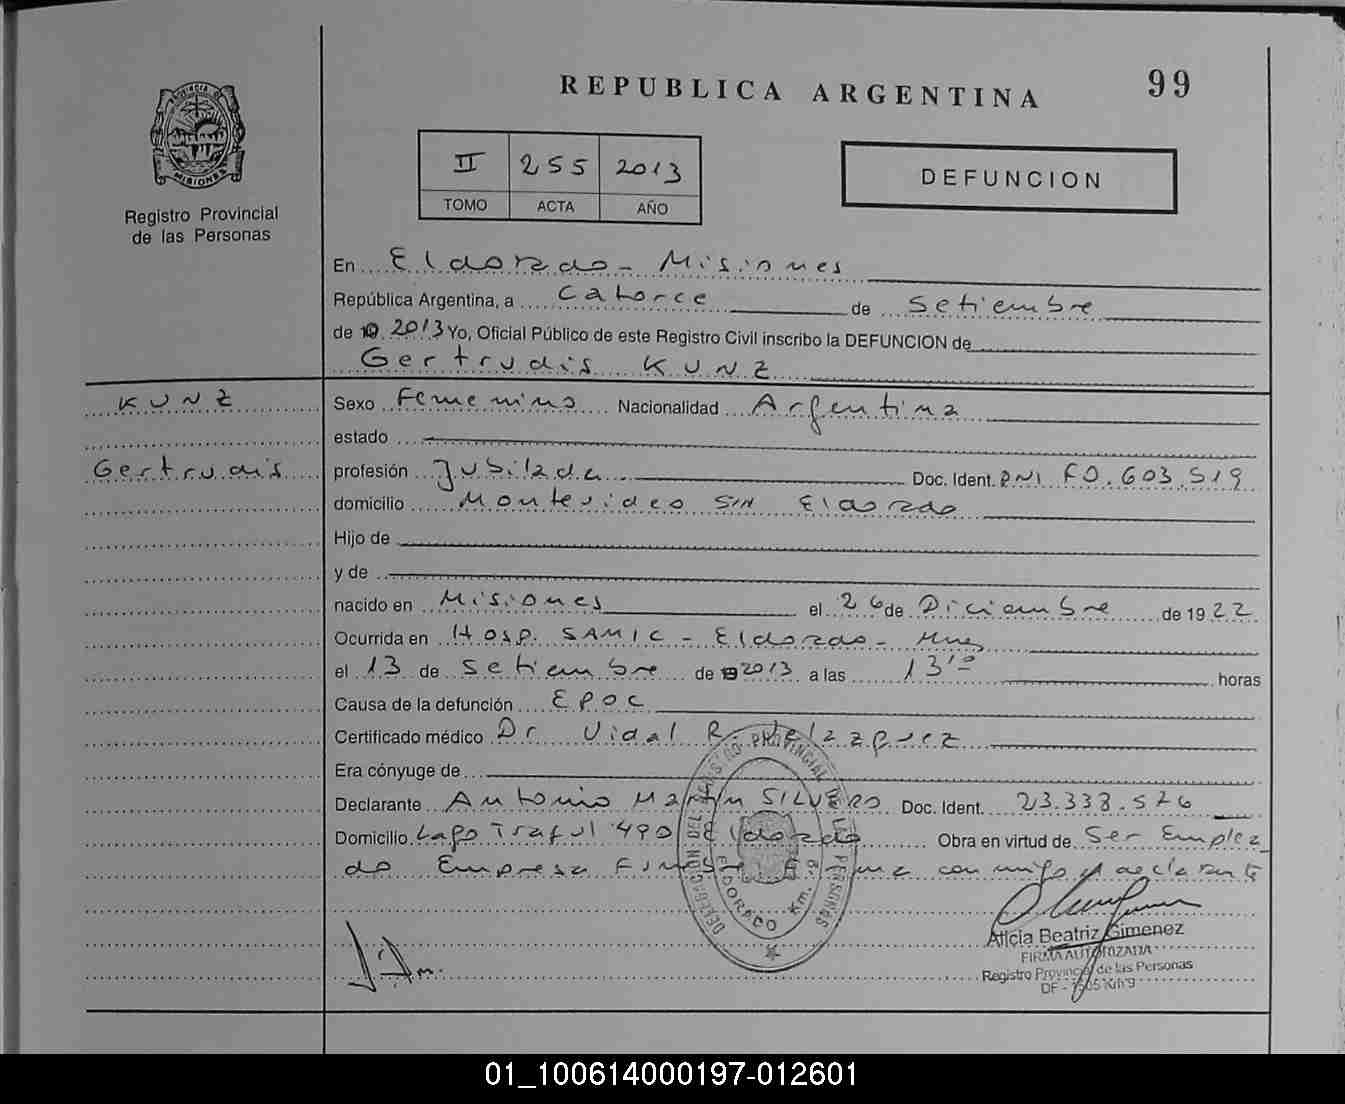 REPUBLICA ARGENTINA
99
PROVINCIA D
MISIONES
Registro Provincial
de las Personas
II 255 2013
TOMO ACTA AÑO
DEFUNCION
En Eldorado - Misiones
República Argentina, a catorce de Setiembre
de 2013 Yo, Oficial Público de este Registro Civil inscribo la DEFUNCION de
Gertrudis KUNZ
KUNZ
Gertrudis
Sexo Femenino Nacionalidad Argentina
estado
profesión Jubilada Doc. Ident. DNI F0.603.519
domicilio Montevideo S/N Eldorado
Hijo de
y de
nacido en Misiones el 26 de Diciembre de 1922
Ocurrida en Hosp. SAMIC - Eldorado - Mnes
el 13 de Setiembre de 2013 a las 13¹⁰ horas
Causa de la defunción EPOC
Certificado médico Dr Vidal R. Velazquez
Era cónyuge de
Declarante Antonio Martin SILVERO Doc. Ident. 23.338.576
Domicilio Lago Traful 490 Eldorado Obra en virtud de Ser Emplea
do Empresa conmigo y declarante
DELEGACION DEL REGISTRO PROVINCIAL DE LAS PERSONAS
ELDORADO Km. 9
Alicia Beatriz Gimenez
FIRMA AUTORIZADA
Registro Provincial de las Personas
Km 9
01_100614000197-012601